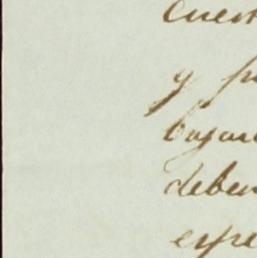 cuen
y p
bajar
deben
espe